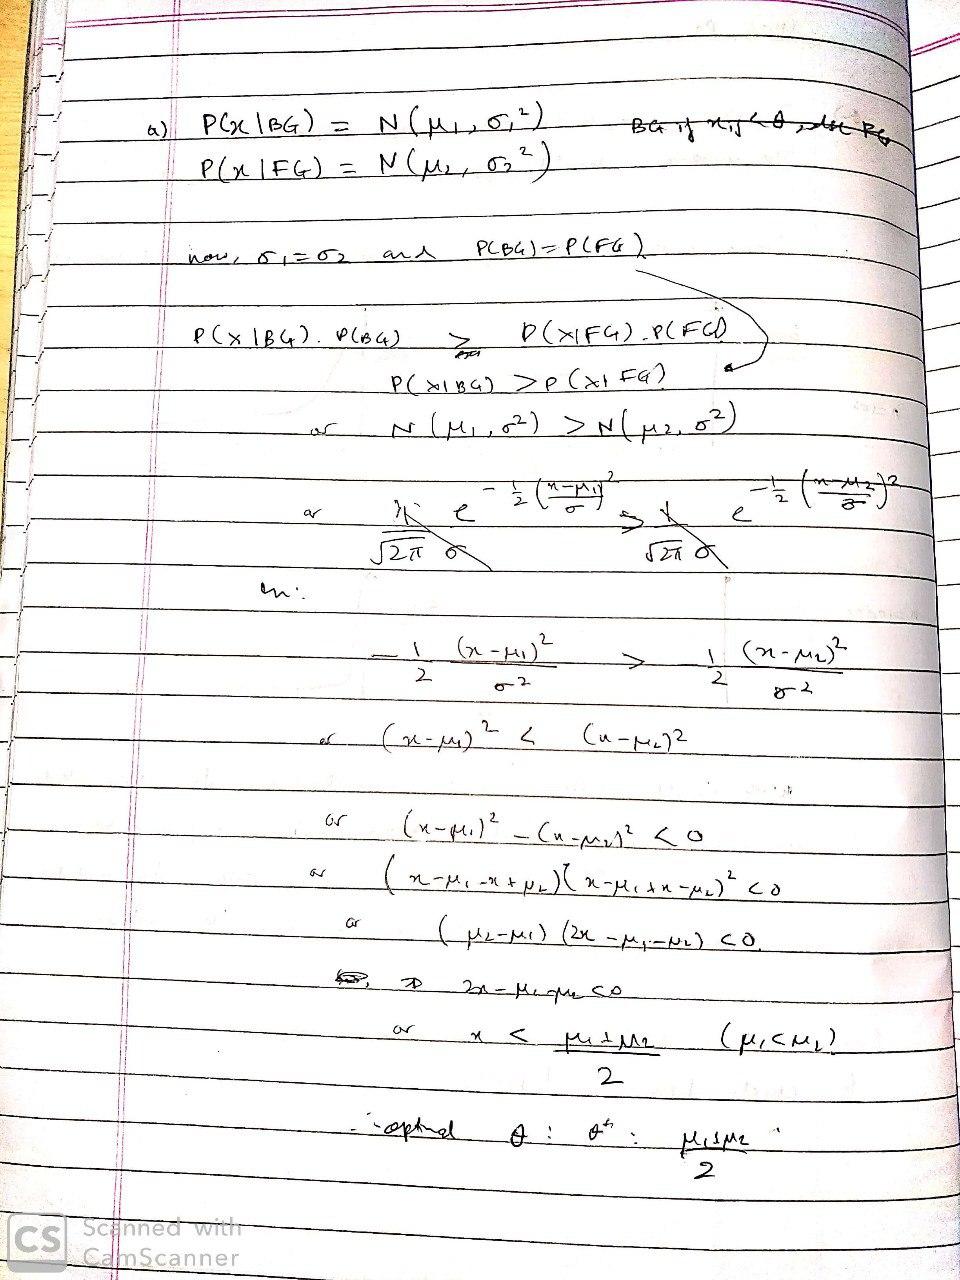 a) P(x|BG) = N(μ₁, σ₁²) BG if xᵢⱼ < θ, else FG
P(x|FG) = N(μ₂, σ₂²)
now, σ₁=σ₂ and P(BG)=P(FG)
P(x|BG). P(BG) > P(x|FG).P(FG)
P(x|BG) > P(x|FG)
or N(μ₁, σ²) > N(μ2, σ²)
or 1/(√2π σ) e^(-1/2 ((x-μ₁)/σ)²) > 1/(√2π σ) e^(-1/2 ((x-μ2)/σ)²)
ln:
- 1/2 (x-μ₁)²/σ² > - 1/2 (x-μ₂)²/σ²
or (x-μ₁)² < (x-μ₂)²
or (x-μ₁)² - (x-μ₂)² < 0
or (x-μ₁-x+μ₂)(x-μ₁+x-μ₂)² < 0
or (μ₂-μ₁) (2x-μ₁-μ₂) < 0.
⇒ 2x-μ₁-μ₂ < 0
or x < (μ₁+μ₂)/2 (μ₁<μ₂)
∴ optimal θ : θ* : (μ₁+μ₂)/2
CS Scanned with
CamScanner